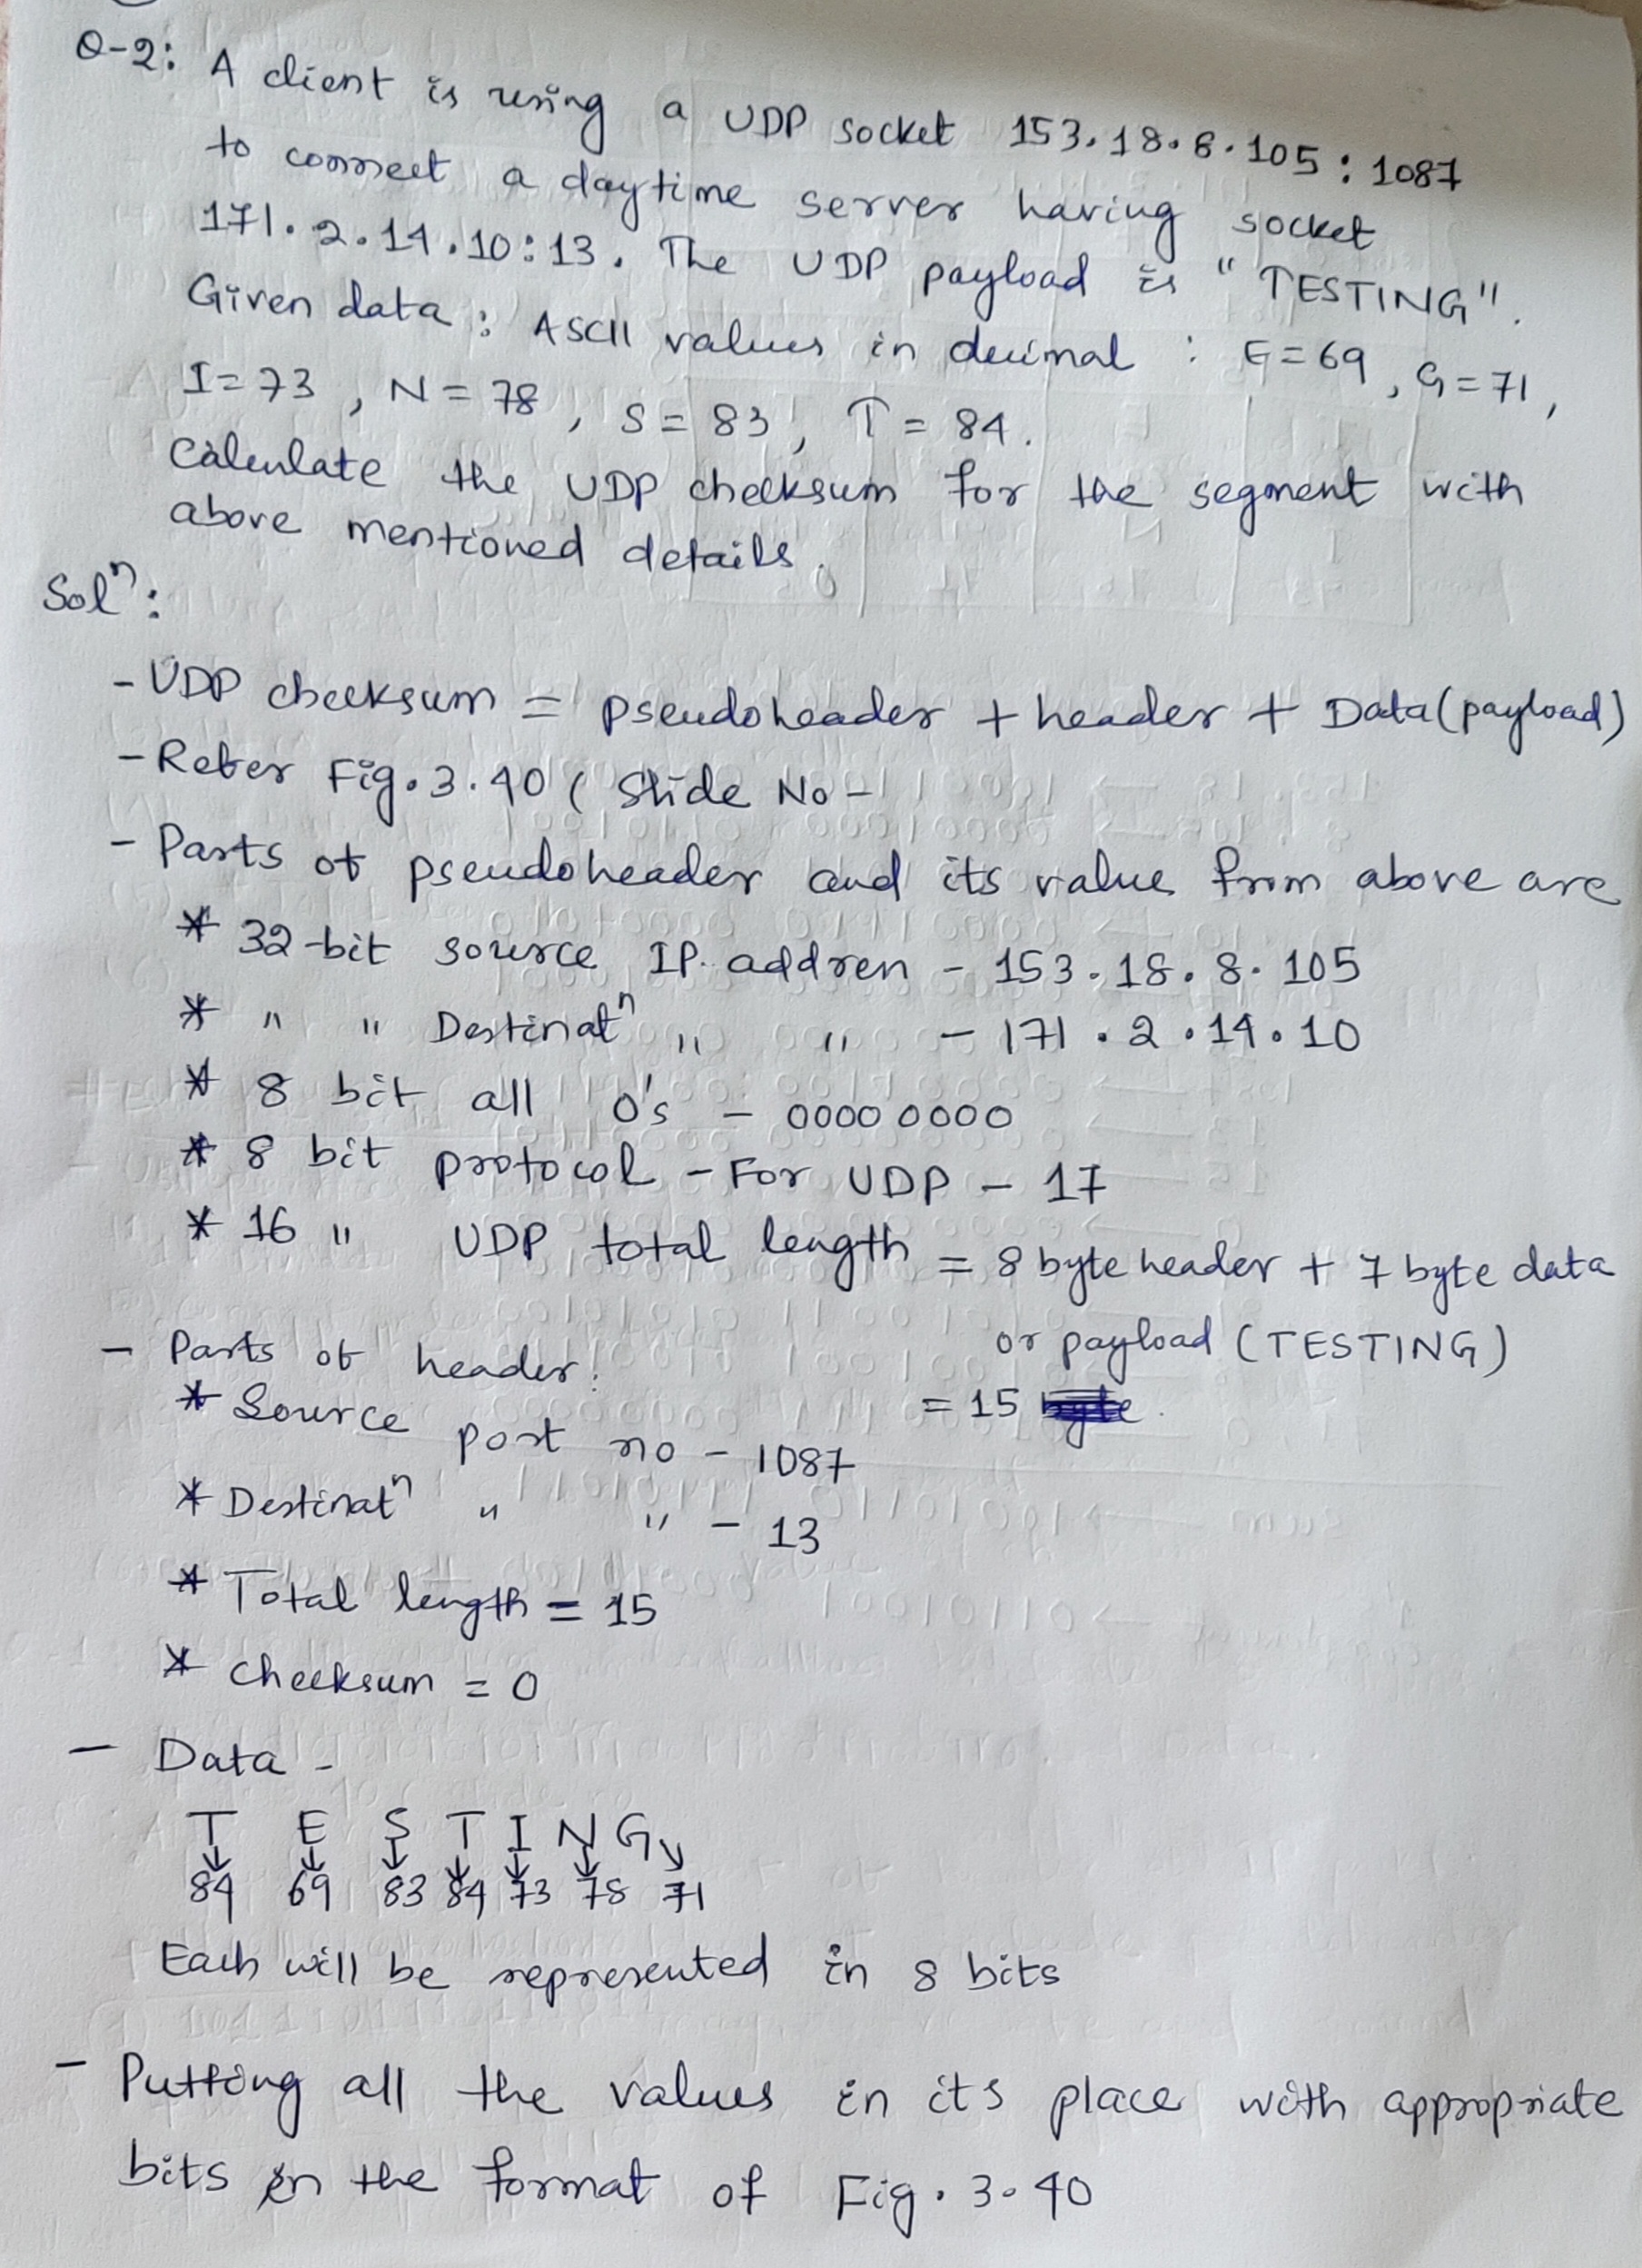 Q-2: A client is using a UDP socket 153.18.8.105:1087
to connect a daytime server having socket
171.2.14.10:13. The UDP payload is "TESTING".
Given data: ASCII values in decimal : E=69, G=71,
I=73, N=78, S=83, T=84.
Calculate the UDP checksum for the segment with
above mentioned details.
Solⁿ:
- UDP checksum = pseudoheader + header + Data(payload)
- Refer Fig.3.40 ( Slide No -
- Parts of pseudoheader and its value from above are
* 32-bit source IP address - 153.18.8.105
* " " Destinatⁿ " " - 171.2.14.10
* 8 bit all 0's - 0000 0000
* 8 bit protocol - For UDP - 17
* 16 " UDP total length = 8 byte header + 7 byte data
or payload (TESTING)
= 15
- Parts of header:
* Source port no - 1087
* Destinatⁿ " " - 13
* Total length = 15
* Checksum = 0
- Data -
T E S T I N G
84 69 83 84 73 78 71
Each will be represented in 8 bits
- Putting all the values in its place with appropriate
bits in the format of Fig. 3.40